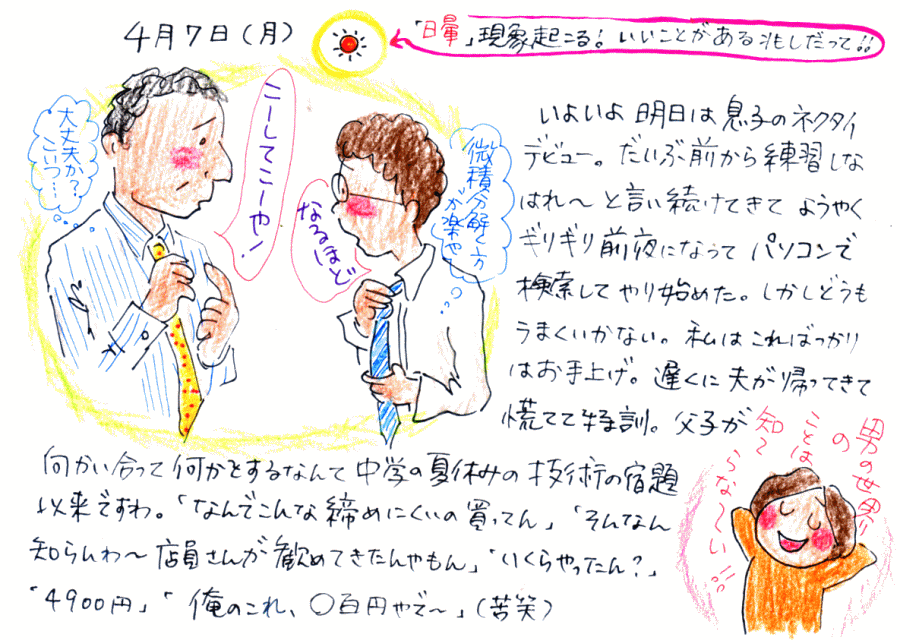 4月7日(月)
「日暈」現象起こる! いいことがある兆しだって!!
大丈夫か?
こいつ…
こーしてこーや!
なるほど
微積分解く方
が楽や…
いよいよ明日は息子のネクタイ
デビュー。だいぶ前から練習しな
はれ〜と言い続けてきてようやく
ギリギリ前夜になってパソコンで
検索してやり始めた。しかしどうも
うまくいかない。私はこればっかり
はお手上げ。遅くに夫が帰ってきて
慌てて特訓。父子が
向かい合って何かとするなんて中学の夏休みの技術の宿題
以来ですわ。「なんでこんな締めにくいの買ってん」「そんなん
知らんわ〜店員さんが歓めてきたんやもん」「いくらやったん?」
「4900円」「俺のこれ、〇百円やで〜」(苦笑)
男の世界
の
ことは
知〜
らな〜い!!